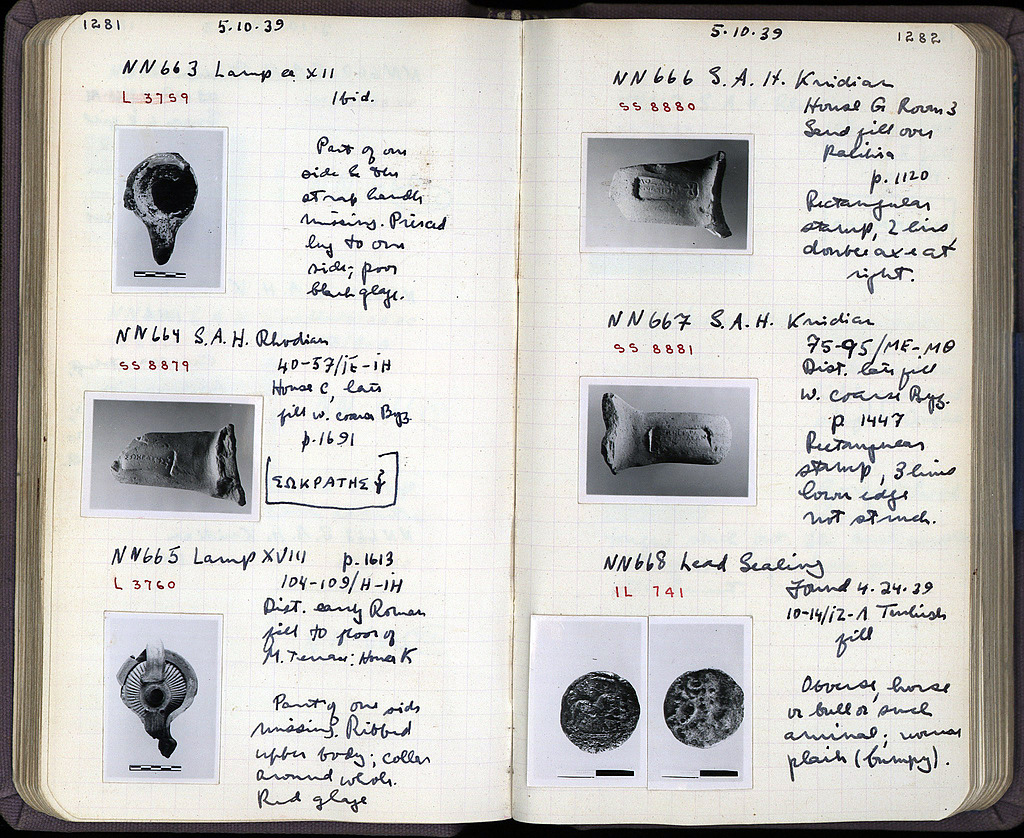 1281
5.10.39
NN663 Lamp ca XII
L 3759
Ibid.
Part of one
side & the
strap handle
missing. Pierced
lug to one
side; poor
black glaze.
NN664 S.A.H. Rhodian
SS 8879
40-57/ΙΕ-ΙΗ
House C, late
fill w. coarse Byz.
p.1691
ΣΩΚΡΑΤΗΣ
NN665 Lamp XVIII p.1613
L 3760
104-109/Η-ΙΗ
Dist. early Roman
fill to floor of
M. Terrace: House K
Part of one side
missing. Ribbed
upper body; collar
around whole.
Red glaze
5.10.39
1282
NN666 S.A.H. Knidian
SS 8880
House G Room 3
Sand fill over
p.1120
Rectangular
stamp, 2 lines
double axe at
right.
NN667 S.A.H. Knidian
SS 8881
75-95/ΜΕ-ΜΘ
Dist. late fill
w. coarse Byz.
p 1447
Rectangular
stamp, 3 lines
lower edge
not struck.
NN668 Lead Sealing
IL 741
Found 4.24.39
10-14/ΙΖ-Λ Turkish
fill
Obverse, horse
or bull or such
animal; reverse
plain (bumpy).